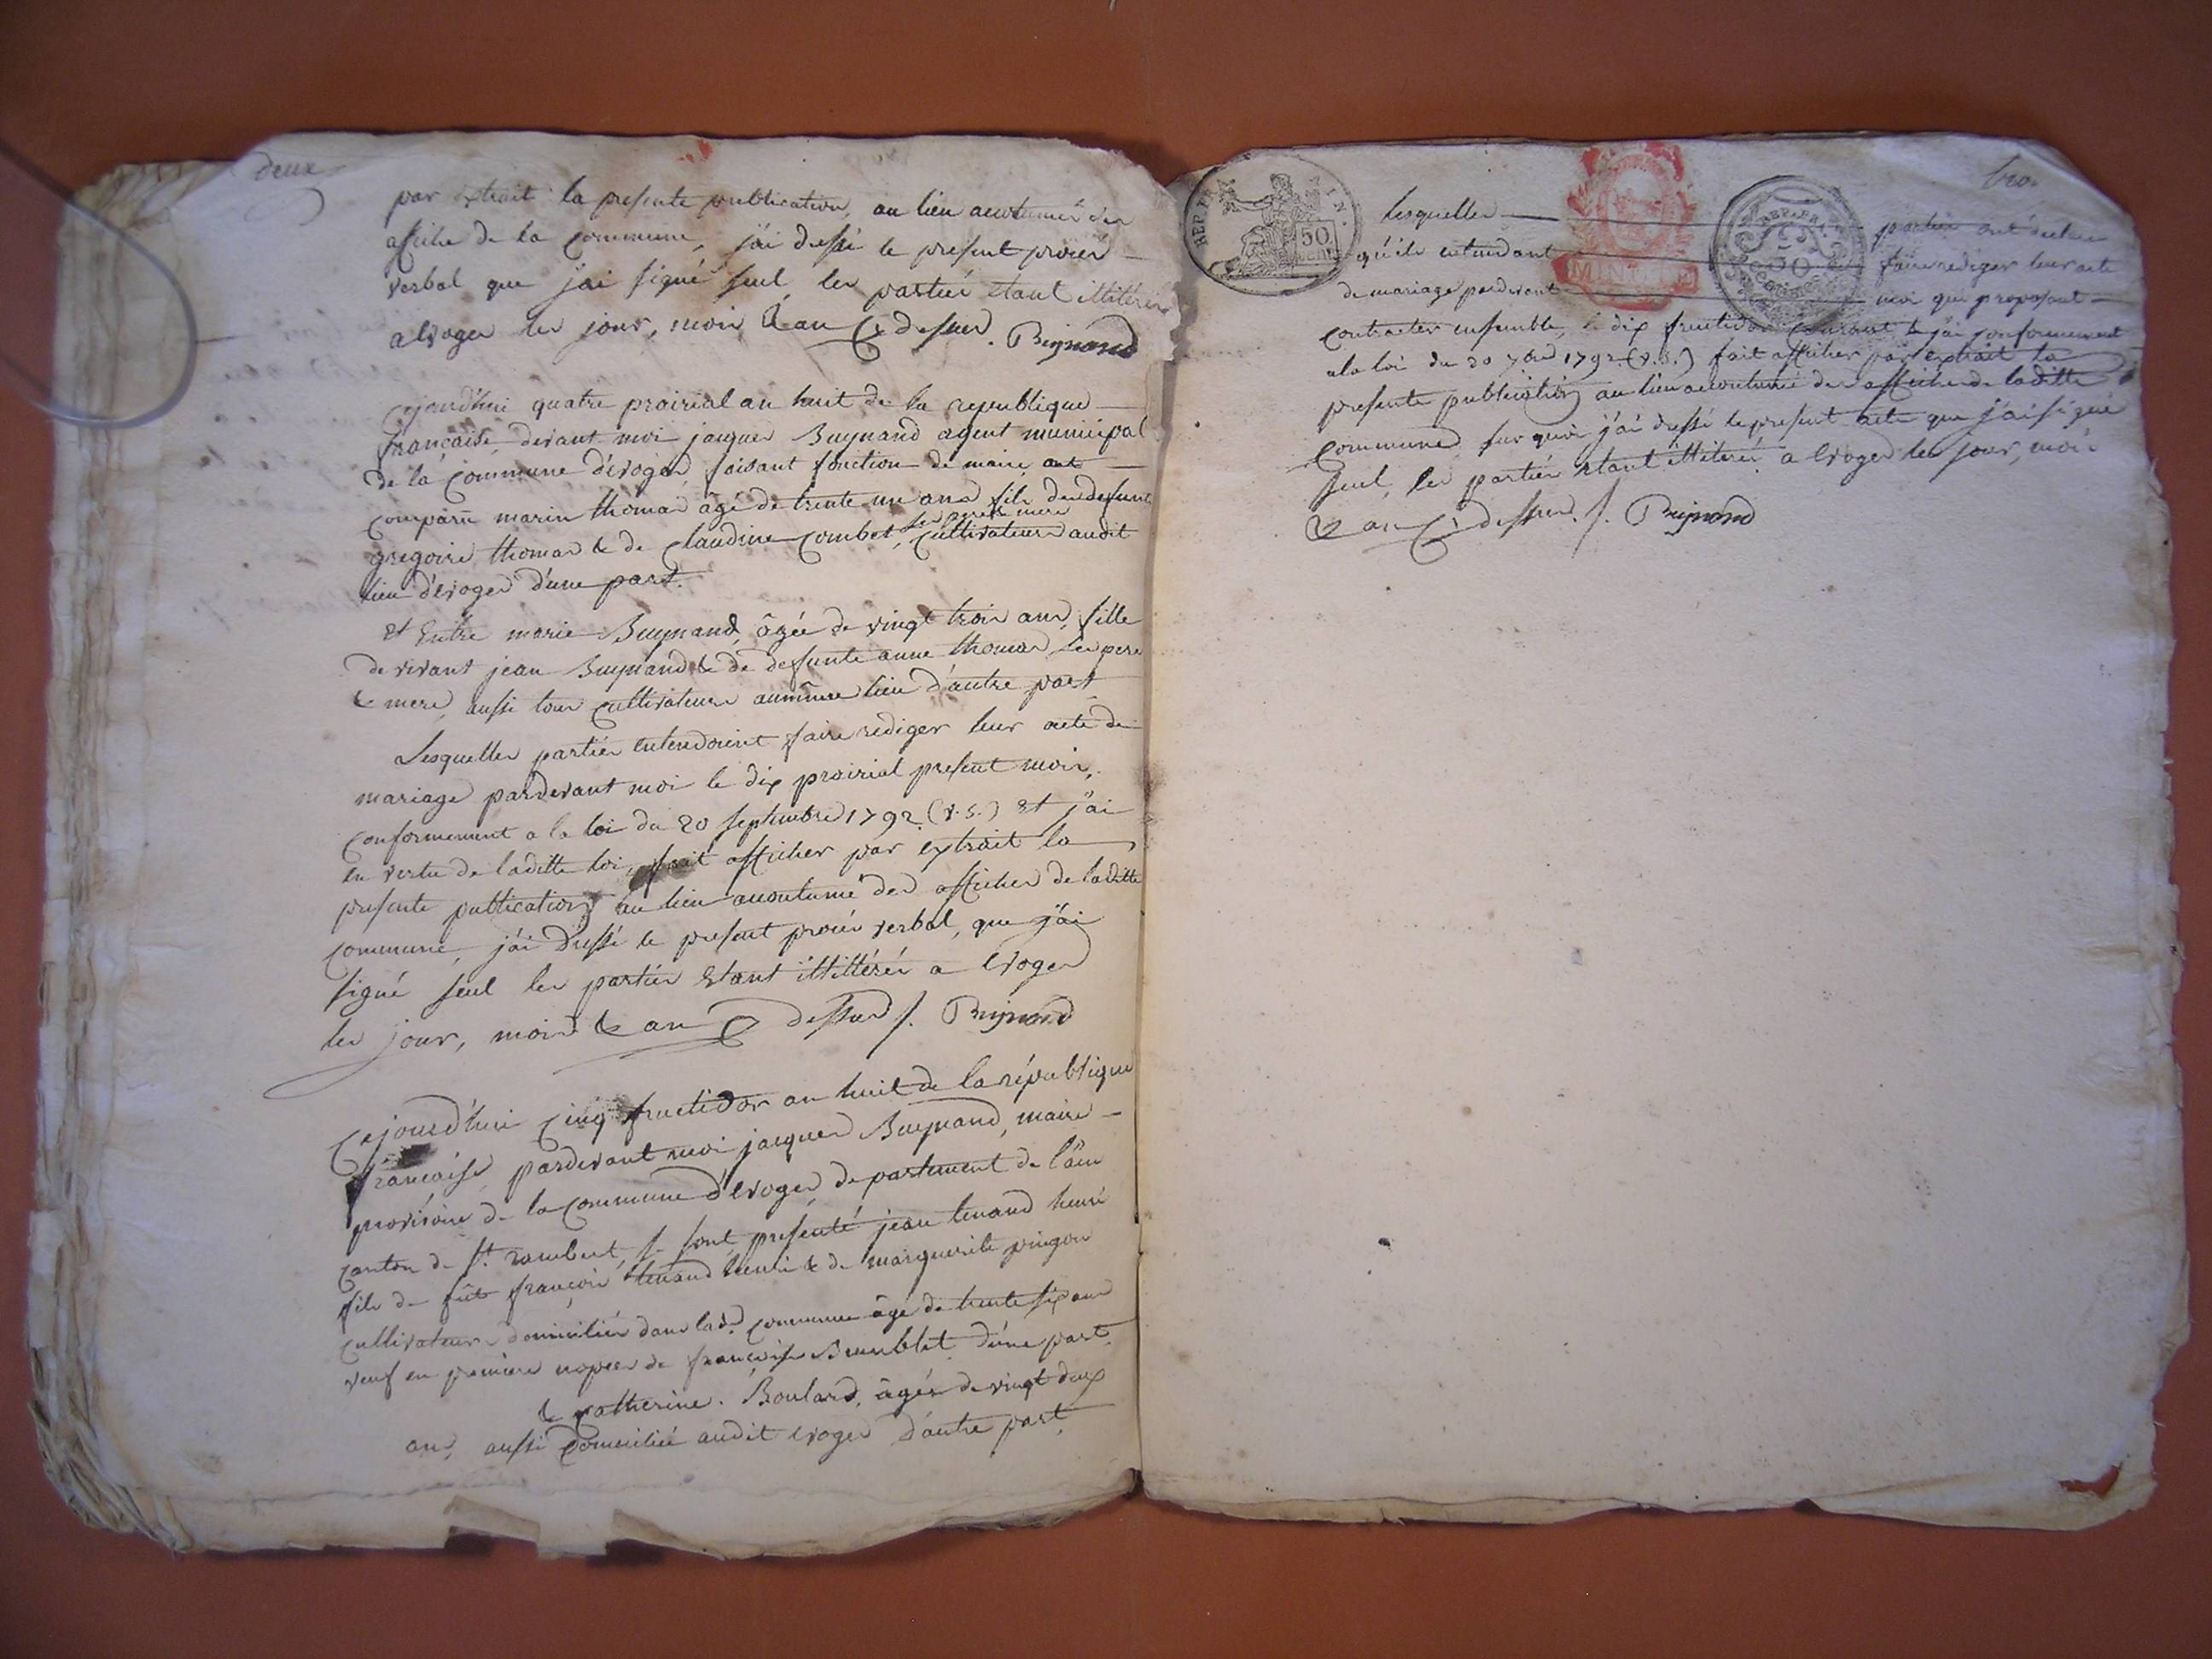 deux
par extrait la presente publication, au lieu acoutumé des
affiche de la Commune, j'ai dressé le present procès
verbal que j'ai signé seul, les parties étant illitérées
a Evoges les jour, mois & an Ci dessus. Buynand
Cejourd'hui quatre prairial an huit de la republique
française, devant moi jacques Buynand agent municipal
de la Commune d'evoges, faisant fonction de maire ont
comparu marin thomas âgé de trente un ans fils des defunt
ses pere & mere
gregoire thomas & de Claudine Combet, Cultivateurs audit
lieu d'evoges d'une part.
Et Entre marie Buynand, âgée de vingt trois ans, fille
de vivant jean Buynand & de defunte anne thomas ses pere
& mere, aussi tous cultivateurs au même lieu d'autre part
Lesquelles parties entendoient faire rediger leur acte de
mariage pardevant moi le dix prairial present mois,
conformement a la loi du 20 septembre 1792. (v.s.) Et j'ai
en vertu de laditte loi, fait afficher par extrait la
presente publication au lieu acoutumé des affiches de laditte
commune, j'ai dressé le present procès verbal, que j'ai
signé seul les parties étant illittérées a Evoges
les jour, mois & an Ci dessus /. Buynand
Cejourd'hui Cinq fructidor an huit de la république
française, pardevant moi jacques Buynand, maire
provisoire de la Commune d'Evoges, departement de l'ain
canton de St. rambert, se sont presenté jean tenand henri
fils de fût françois tenand henri & de marguerite pingon
cultivateurs domiciliés dans lad. Commune âgé de trente six ans
veuf en premiere nopces de françoise d'une part
& catherine Boulard, âgée de vingt deux
ans, aussi domiciliée audit Evoges d'autre part,
trois
REP. FRA
50
CENT
MIN
REP. FRA
50
lesquelles parties ont declaré
qu'ils entendant faire rediger leur acte
de mariage pardevant moi que proposant
contracter ensemble, le dix fructidor courant & j'ai conformement
a la loi du 20 7bre 1792. (v.s.) fait afficher par extrait la
presente publication au lieu acoutumé des affiche de laditte
commune, sur quoi j'ai dressé le present acte que j'ai signé
seul, les parties étant illiterées a Evoges les jour, mois
& an Ci dessus. /. Buynand